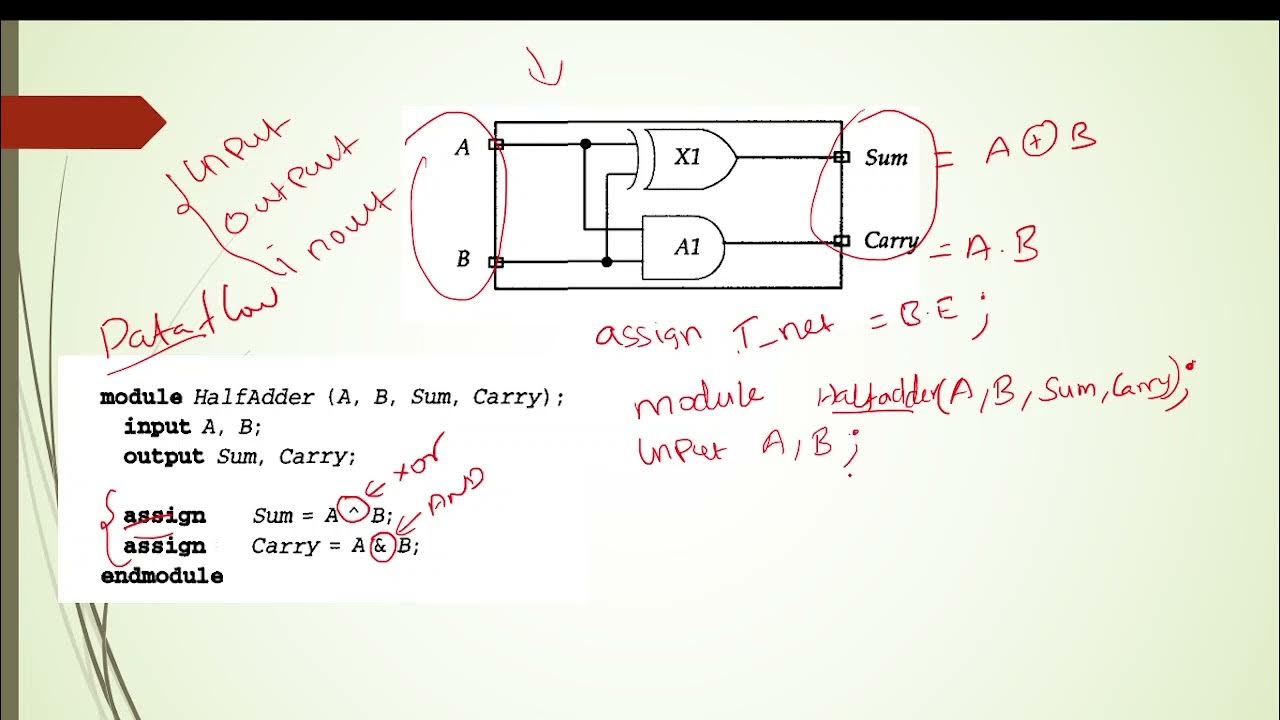 input
output
inout
Dataflow
A
B
X1
A1
Sum = A ⊕ B
Carry = A . B
assign I_net = B.E ;
module HalfAdder (A, B, Sum, Carry);
input A, B;
output Sum, Carry;
assign Sum = A ^ B;
xor
assign Carry = A & B;
AND
endmodule
module Halfadder(A, B, Sum, Carry);
input A, B ;